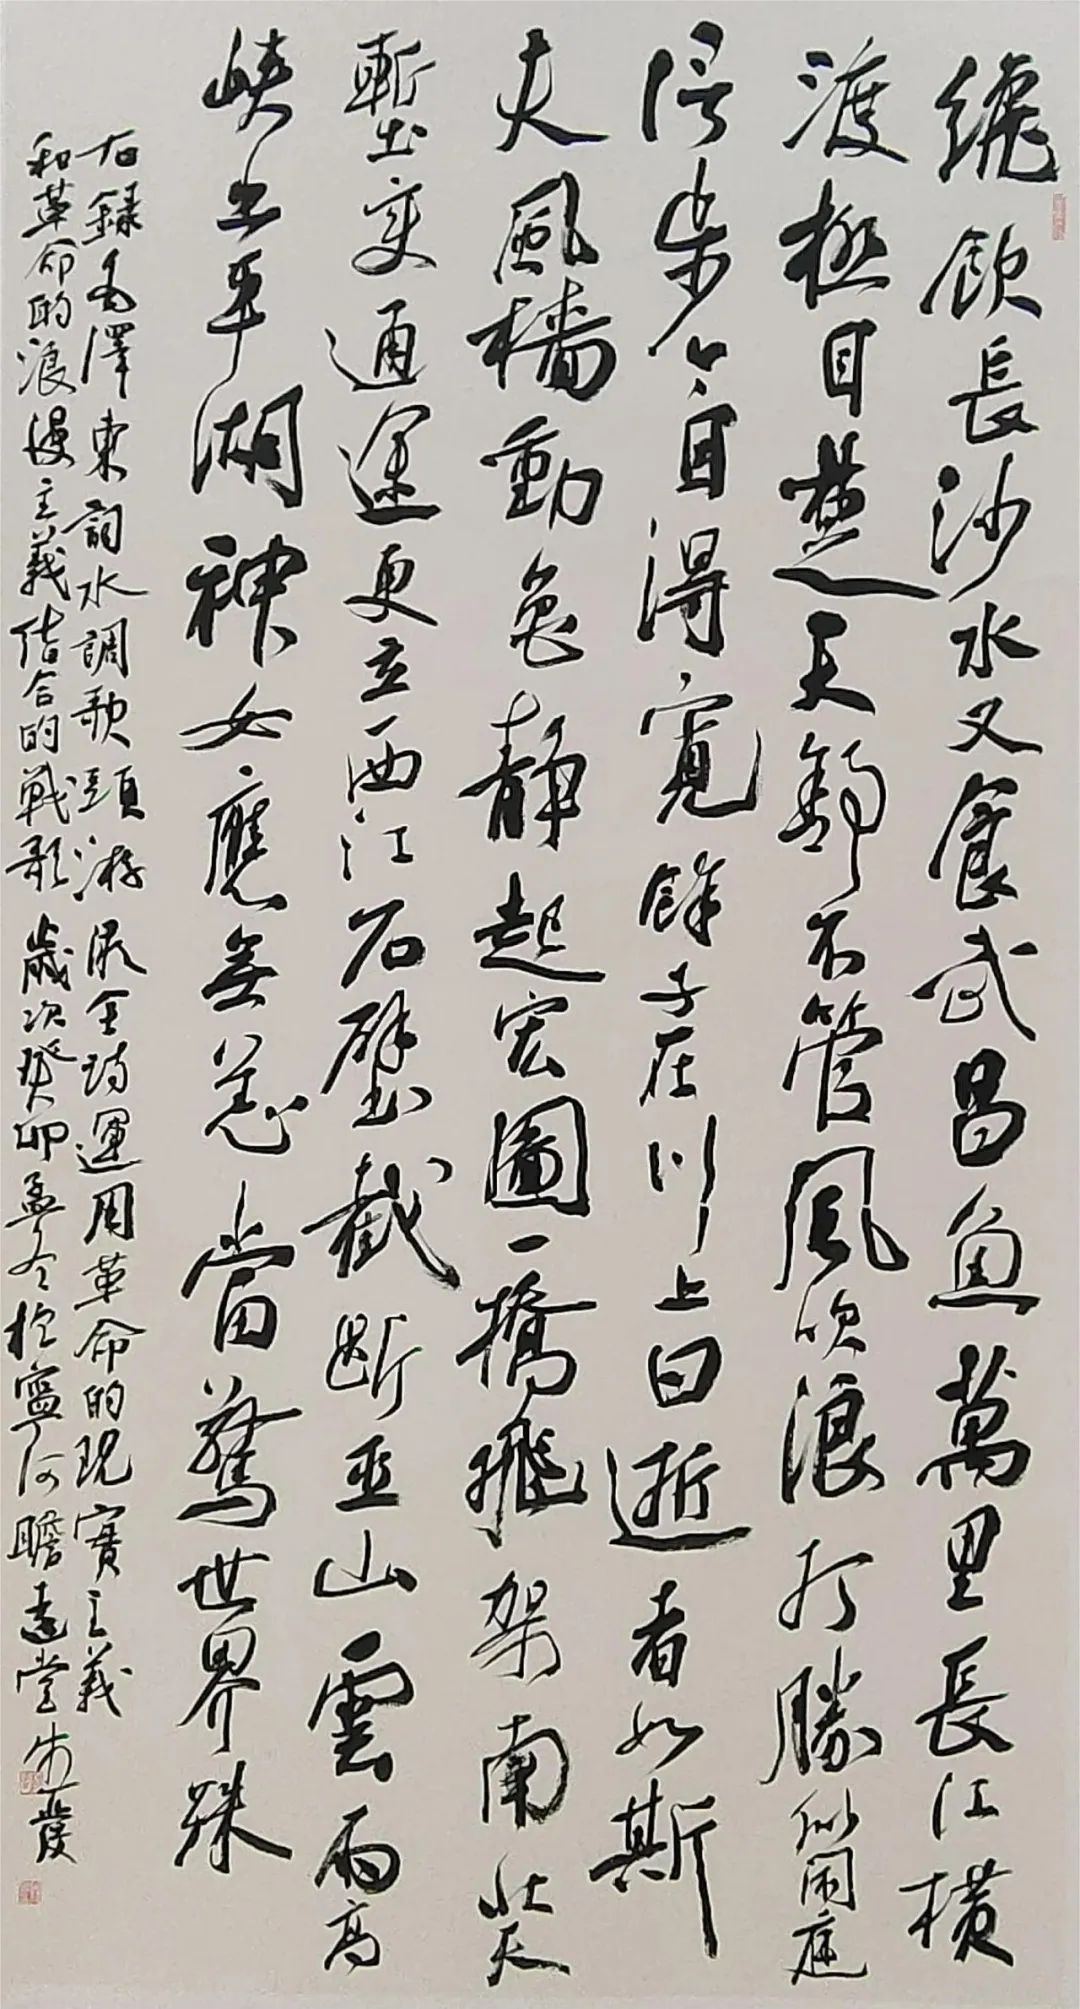 纔飲長沙水又食武昌魚萬里長江横
渡極目楚天舒不管风吹浪打勝似闲庭
信步今日得寬餘子在川上曰逝者如斯
夫風檣動龟静起宏圖一橋飛架南北天
塹变通途更立西江石壁截断巫山雲雨高
峡出平湖神女應無恙當驚世界殊
右録毛澤東詞水調歌頭游泳全詩運用革命的現實主義
和革命的浪漫主義结合的戰歌歲次癸卯孟冬於寧河瞻遠堂